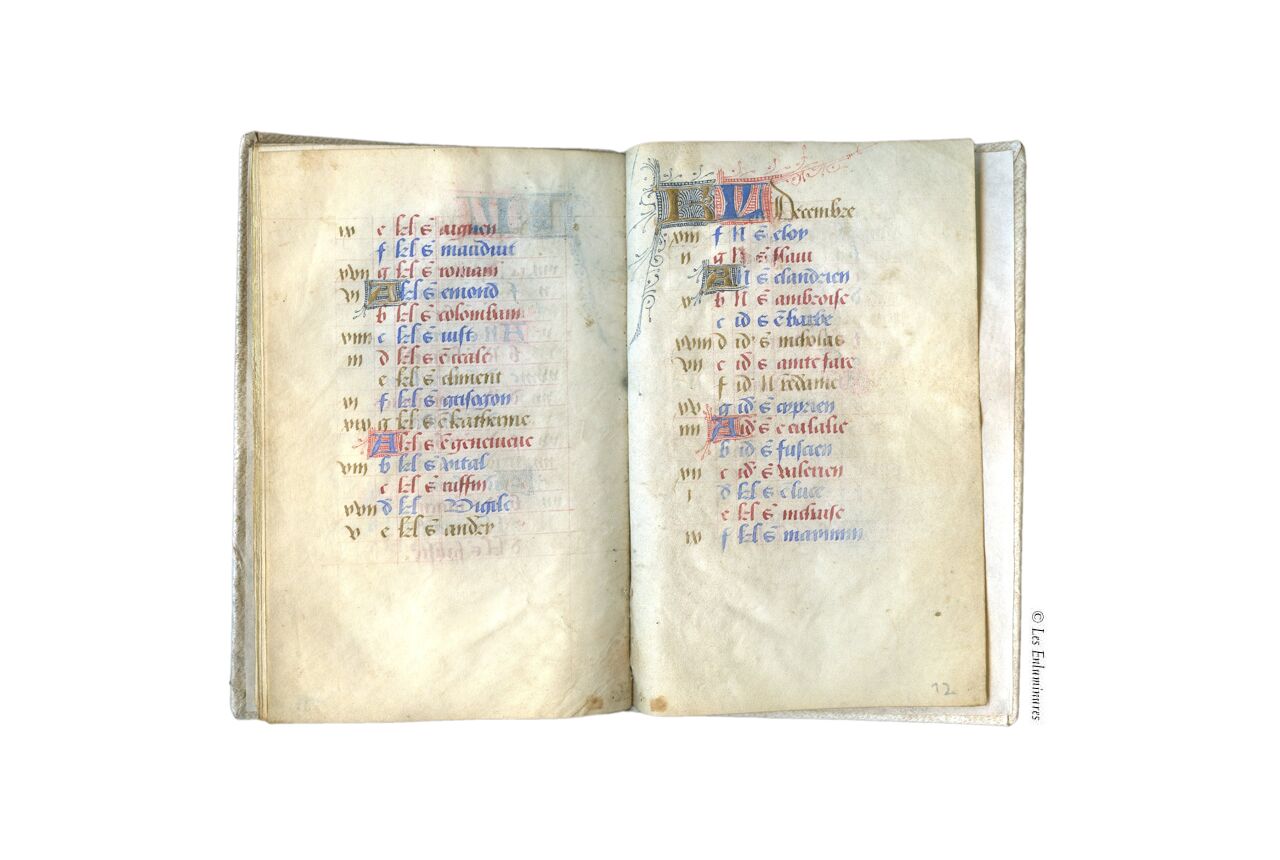 iv e kl s aignen
f kl s maudiut
xvii g kl s romain
vi A kl s emond
b kl s colombain
xiiii c kl s iust
iii d kl s cecile
e kl s climent
xi f kl s grisogon
xix g kl s katherine
A kl s genevieve
viii b kl s vital
c kl s ruffin
xvi d kl Vigile
v e kl s andry
KL Decembre
xiii f N s eloy
ii g N s
A N s clandrien
x b N s ambroise
c id s barbe
xviii d id s nicholas
vii e id s
f id N redame
xv g id s cyprien
iiii A id s eulalie
b id s fuscien
xii c id s valerien
i d kl s luce
e kl s nichaise
ix f kl s maximin
12
© Les Enluminures